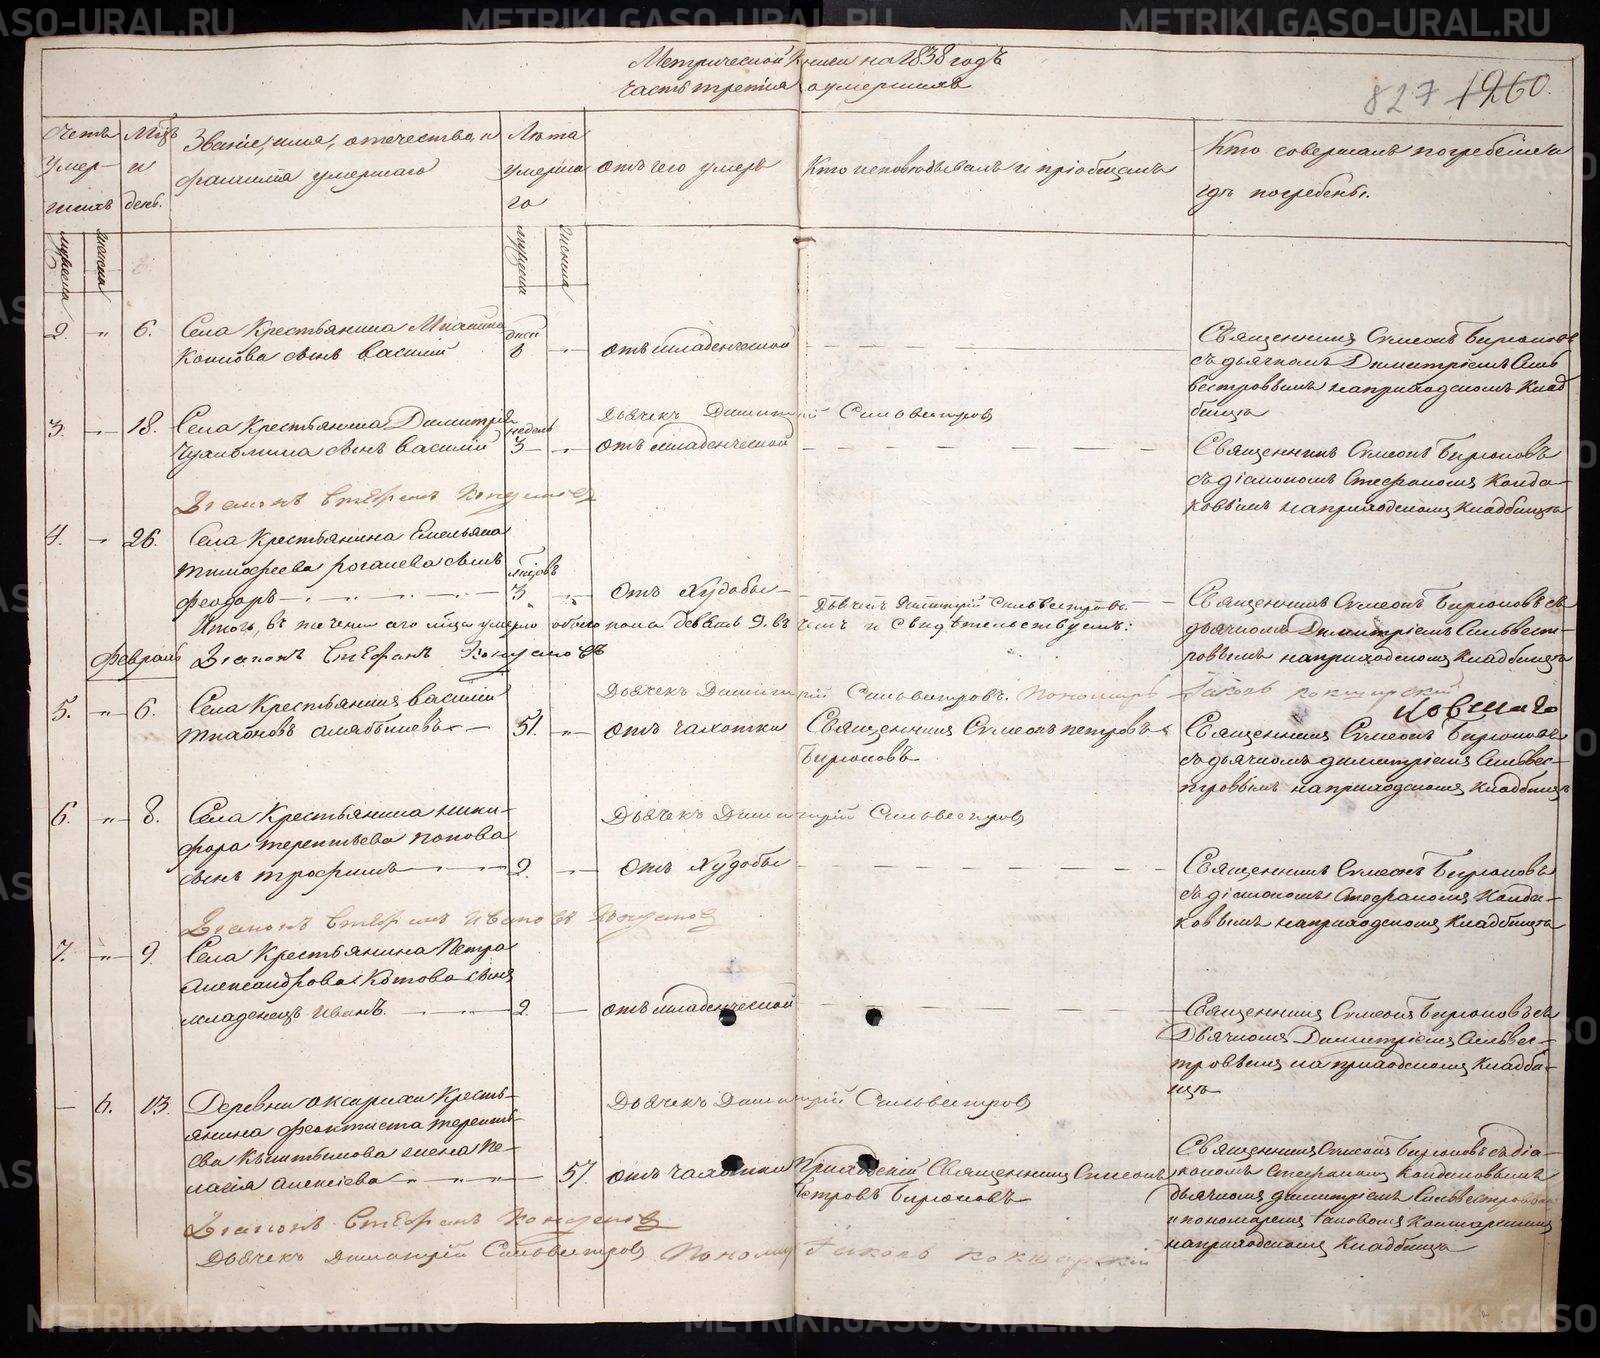 METRIKI.GASO-URAL.RU
Метрической книги на 1838 годъ
часть третія о умершихъ
827 1260.
Счетъ умер-шихъ
Мцъ и день.
Званіе, имя, отечество, и фамилія умершаго
Лѣта умершаго
отъ чего умеръ
Кто исповѣдывалъ и пріобщалъ
Кто совершалъ погребеніе и гдѣ погребены.
мужеска
женска
мужеска
женска
2. " 6.
Села Крестьянина
сынъ Василій
дней 8
отъ младенческой
Священникъ Симеонъ Бирюковъ
съ дьячкомъ Димитріемъ Сильв
вестровымъ на приходскомъ Клад
бищѣ
Дьячекъ Димитрій Сильвестровъ
3. 18.
Села Крестьянина Димитрія
сынъ Василій
недель 3
отъ младенческой
Священникъ Симеонъ Бирюковъ
съ діакономъ Стефаномъ Конда-
ковымъ на приходскомъ Кладбищѣ
Діаконъ Стефанъ Кондаковъ
4. 26.
Села Крестьянина Емельяна
Тимофеева Рогалева сынъ
Феодоръ
мцовъ 3
Отъ Худобы
Дьячекъ Димитрій Сильвестровъ
Священникъ Симеонъ Бирюковъ съ
дьячкомъ Димитріемъ Сильвест-
ровымъ на приходскомъ Кладбищѣ
Итого, въ теченіи сего мца умерло обоего пола девять 9. въ чемъ и свидѣтельствуемъ:
Февраль
Діаконъ Стефанъ Кондаковъ
Дьячекъ Димитрій Сильвестровъ. Пономарь Іаковъ Кокшарскій
5. " 6.
Села Крестьянинъ Василій
51.
отъ чахотки
Священникъ Симеонъ Петровъ
Бирюковъ
Священникъ Симеонъ Бирюковъ
съ дьячкомъ Димитріемъ Сильвес-
тровымъ на приходскомъ Кладбищѣ
6. " 8.
Села Крестьянина Ники-
фора Терентьева Попова
сынъ Трофимъ
2.
Дьячекъ Димитрій Сильвестровъ
Отъ Худобы
Священникъ Симеонъ Бирюковъ
съ діакономъ Стефаномъ Конда-
ковымъ на приходскомъ Кладбищѣ
Діаконъ Стефанъ Ивановъ Кондаковъ
7. " 9.
Села Крестьянина Петра
Александрова Котова сынъ
младенецъ Иванъ.
2.
отъ младенческой
Священникъ Симеонъ Бирюковъ съ
Дьячкомъ Димитріемъ Сильвес-
тровымъ на приходскомъ Кладби-
щѣ
Дьячекъ Димитрій Сильвестровъ
6. 13.
Деревни Кресть-
янина Феоктиста Теренть-
ева жена Пе-
лагія Алексіева
57.
отъ чахотки
Приходскій Священникъ Симеонъ
Петровъ Бирюковъ
Священникъ Симеонъ Бирюковъ съ діа-
кономъ Стефаномъ Кондаковымъ
дьячкомъ Димитріемъ Сильвестровымъ
и пономаремъ Іаковомъ Кокшарскимъ
на приходскомъ Кладбищѣ
Діаконъ Стефанъ Кондаковъ
Дьячекъ Димитрій Сильвестровъ Пономарь Іаковъ Кокшарскій
METRIKI.GASO-URAL.RU